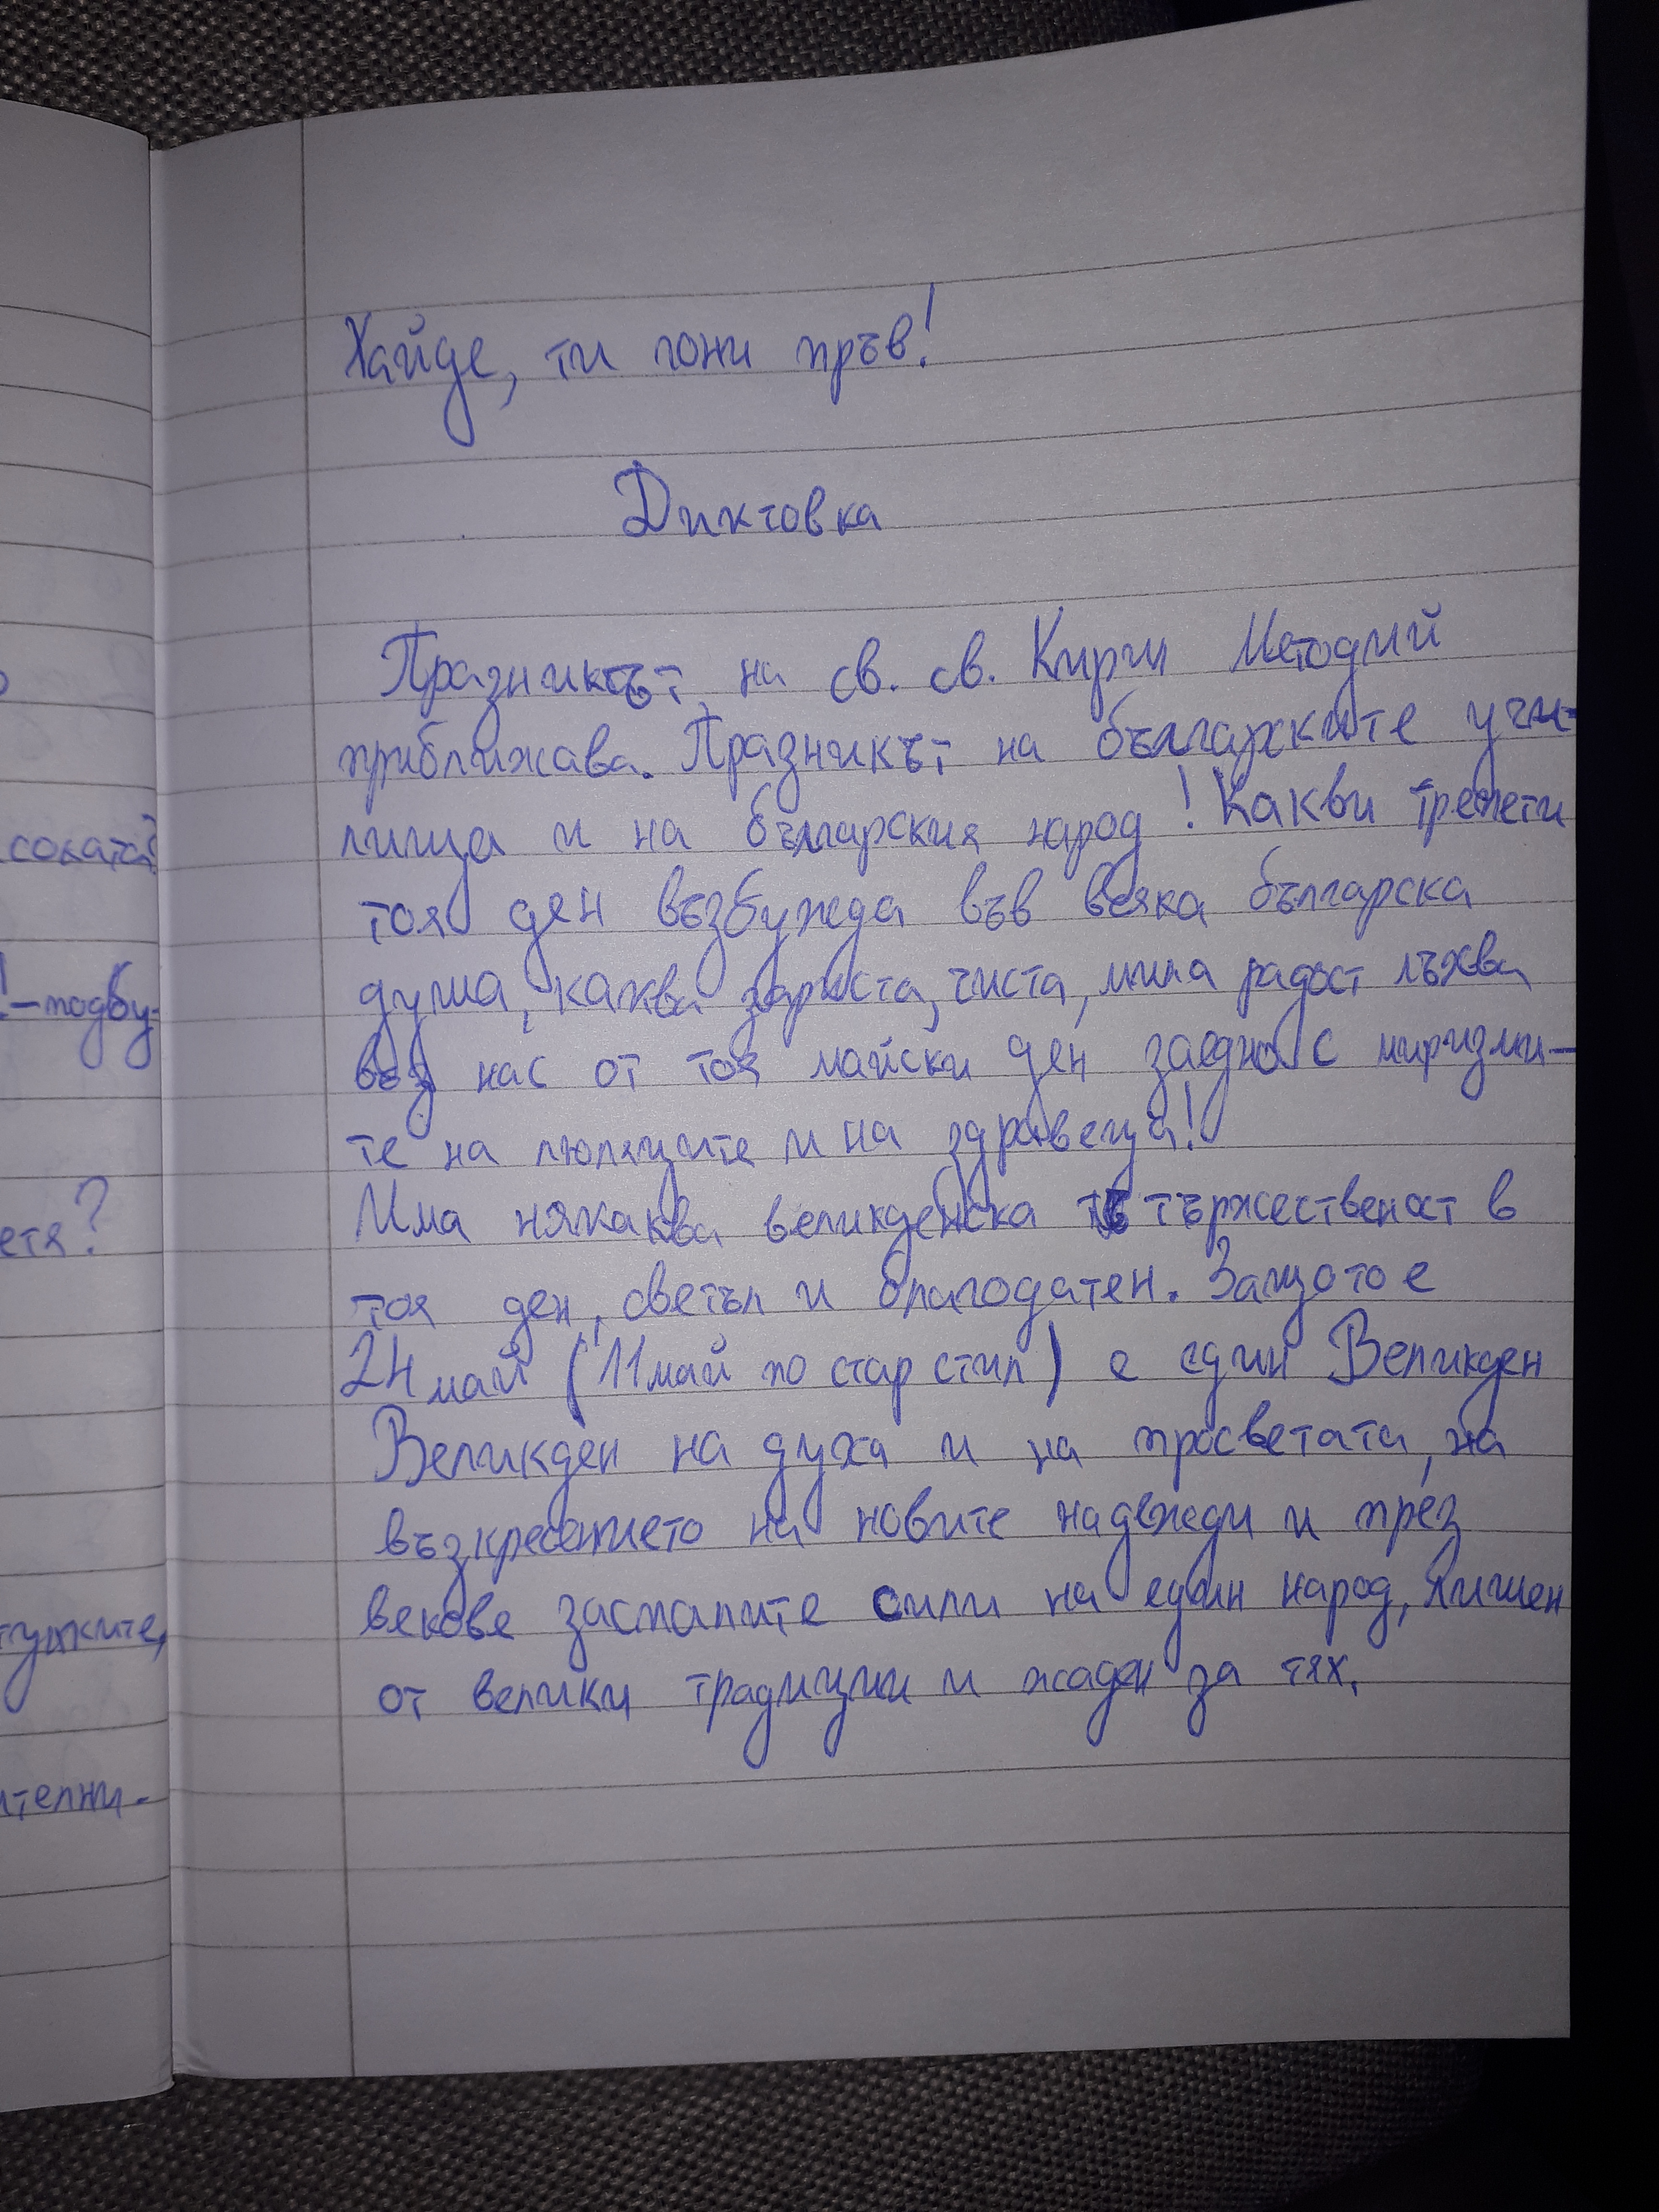 Хайде, ти гони пръв!
Диктовка
Празникът на св. св. Кирил Методий
приближава. Празникът на българските учи-
лища и на българския народ! Какви трепети
тоя ден възбужда във всяка българска
душа, каква зариста, чиста, мила радост лъхва
въз нас от тоя майски ден заедно с миризми-
те на люляците и на здравеца!
Има някаква великденска тържественост в
тоя ден, светъл и благодатен. Защото е
24 май (11 май по стар стил) е един Великден
Великден на духа и на просветата, на
възкресението на новите надежди и през
векове заспалите сили на един народ, лишен
от велики традиции и жаден за тях.
соката?
!-подбу-
етя?
ителни.